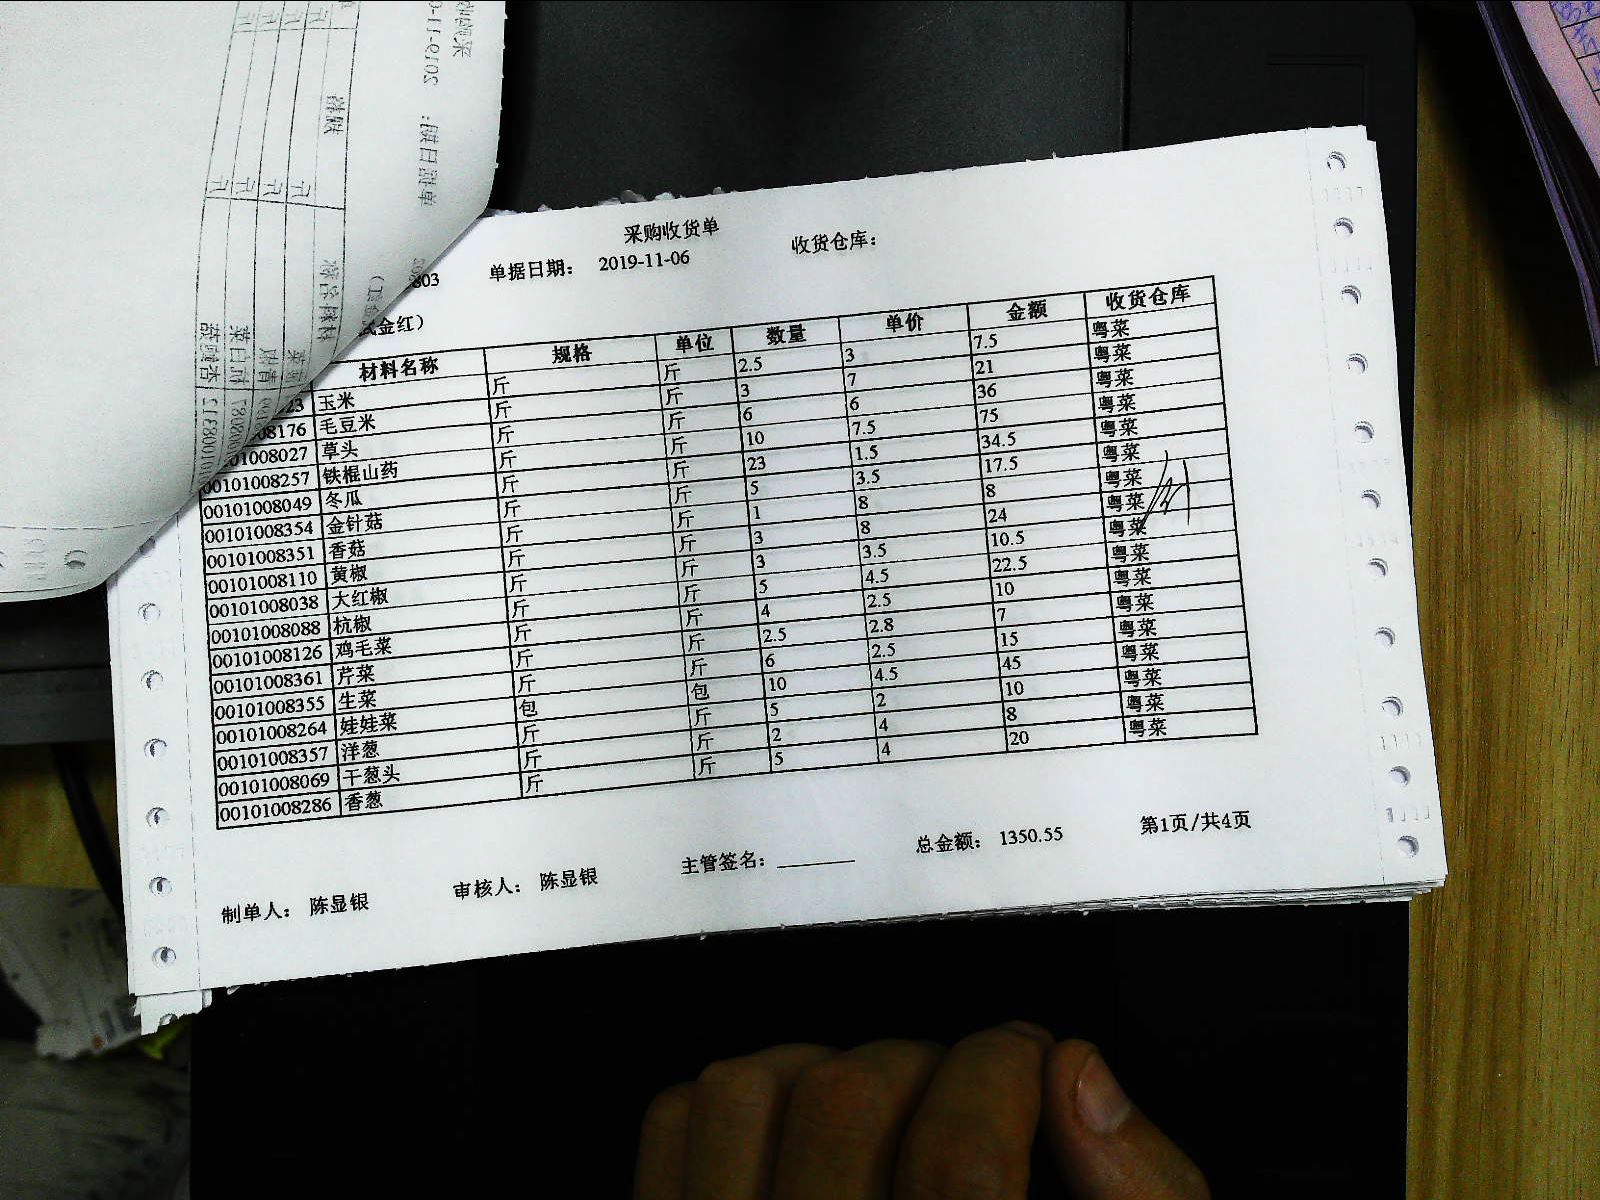 采购收货单
803 单据日期: 2019-11-06 收货仓库:
金红)
材料名称 规格 单位 数量 单价 金额 收货仓库
23 玉米 斤 斤 2.5 3 7.5 粤菜
08176 毛豆米 斤 斤 3 7 21 粤菜
01008027 草头 斤 斤 6 6 36 粤菜
00101008257 铁棍山药 斤 斤 10 7.5 75 粤菜
00101008049 冬瓜 斤 斤 23 1.5 34.5 粤菜
00101008354 金针菇 斤 斤 5 3.5 17.5 粤菜
00101008351 香菇 斤 斤 1 8 8 粤菜
00101008110 黄椒 斤 斤 3 8 24 粤菜
00101008038 大红椒 斤 斤 3 3.5 10.5 粤菜
00101008088 杭椒 斤 斤 5 4.5 22.5 粤菜
00101008126 鸡毛菜 斤 斤 4 2.5 10 粤菜
00101008361 芹菜 斤 斤 2.5 2.8 7 粤菜
00101008355 生菜 斤 斤 6 2.5 15 粤菜
00101008264 娃娃菜 包 包 10 4.5 45 粤菜
00101008357 洋葱 斤 斤 5 2 10 粤菜
00101008069 干葱头 斤 斤 2 4 8 粤菜
00101008286 香葱 斤 斤 5 4 20 粤菜
制单人: 陈显银 审核人: 陈显银 主管签名: 总金额: 1350.55 第1页/共4页